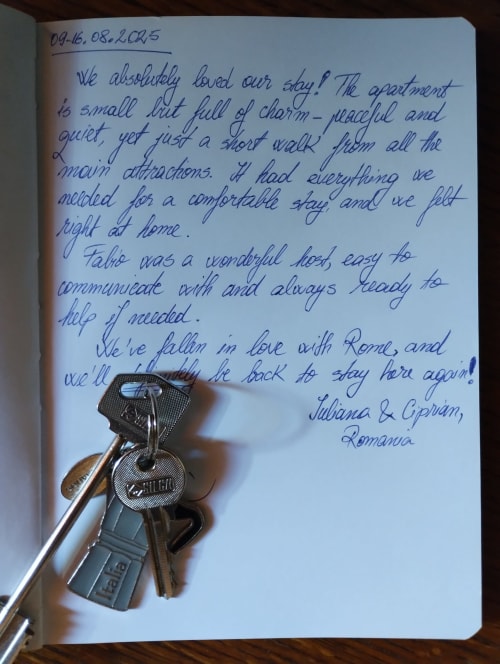 09-16.08.2025
We absolutely loved our stay! The apartment
is small but full of charm - peaceful and
quiet, yet just a short walk from all the
main attractions. It had everything we
needed for a comfortable stay, and we felt
right at home.
Fabio was a wonderful host, easy to
communicate with and always ready to
help if needed.
We've fallen in love with Rome, and
we'll be back to stay here again!
Iuliana & Ciprian,
Romania
SILCA
Italia